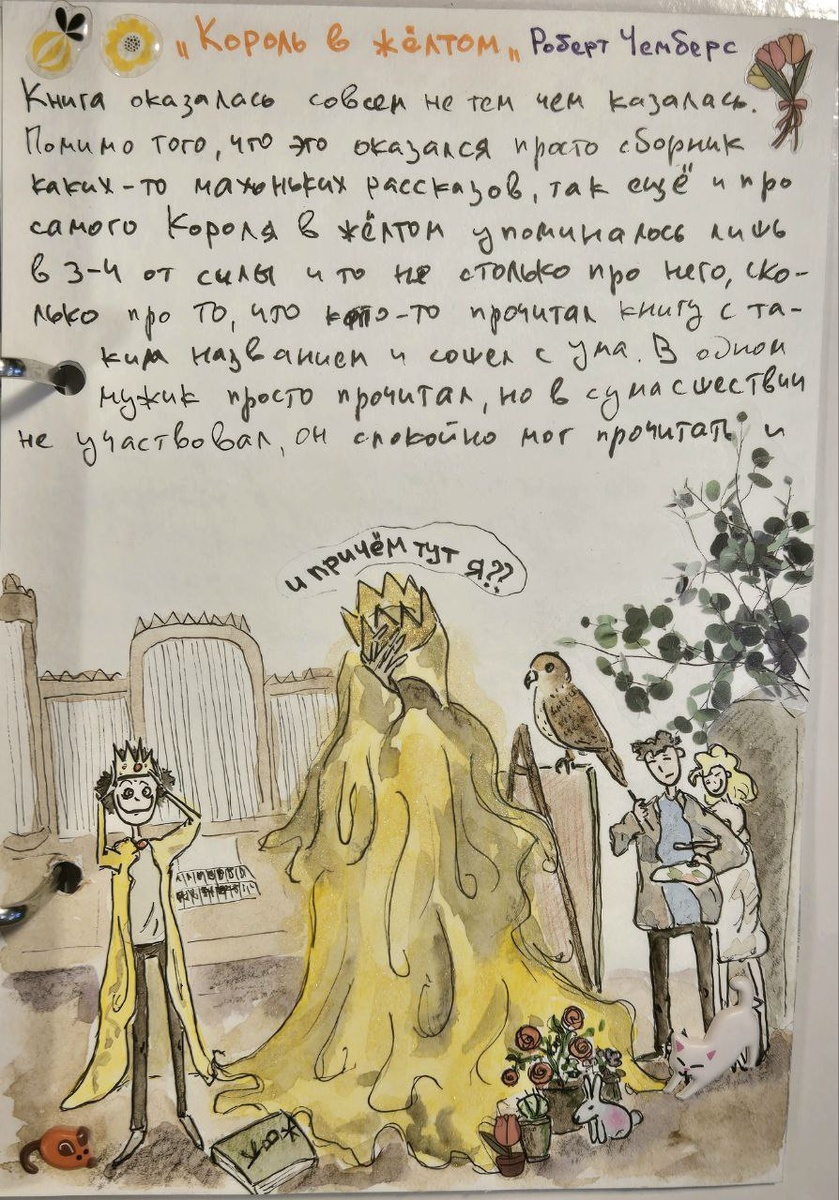 "Король в жёлтом" Роберт Чемберс
Книга оказалась совсем не тем чем казалась.
Помимо того, что это оказался просто сборник
каких-то махоньких рассказов, так ещё и про
самого Короля в жёлтом упоминалось лишь
в 3-4 от силы и то не столько про него, ско-
лько про то, что кто-то прочитал книгу с та-
ким названием и сошел с ума. В одном
мужик просто прочитал, но в сумасшествии
не участвовал, он спокойно мог прочитать и
и причём тут я??